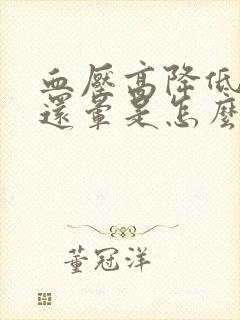 血壓高降低
還暈是怎麼
董冠洋